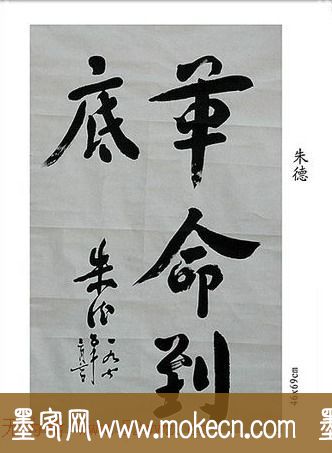 革命到
底
朱德
一九七
朱德
46x69cm
墨客网 www.mokecn.com